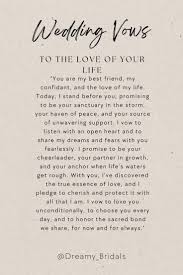 Wedding Vows
TO THE LOVE OF YOUR
LIFE
"You are my best friend, my
confidant, and the love of my life.
Today, I stand before you, promising
to be your sanctuary in the storm,
your haven of peace, and your source
of unwavering support. I vow to
listen with an open heart and to
share my dreams and fears with you
fearlessly. I promise to be your
cheerleader, your partner in growth,
and your anchor when life's waters
get rough. With you, I've discovered
the true essence of love, and I
pledge to cherish and protect it with
all that I am. I vow to love you
unconditionally, to choose you every
day, and to honor the sacred bond
we share, for now and for always."
@Dreamy_Bridals